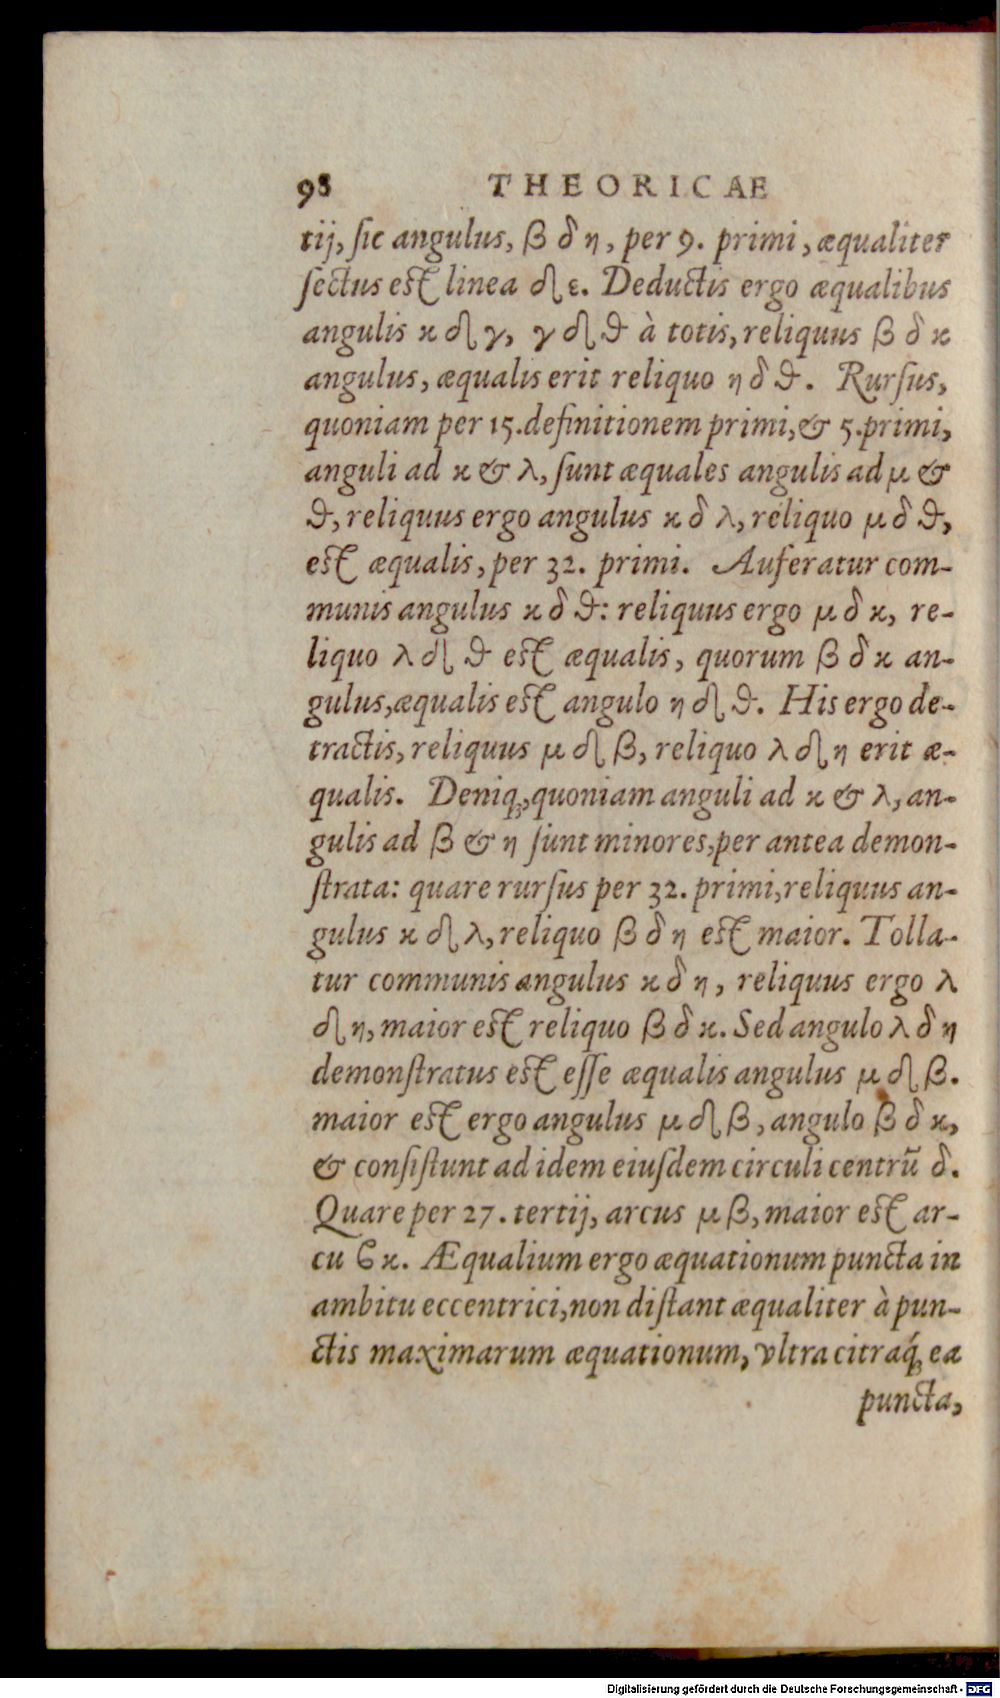 98 THEORICAE
tij, ſic angulus, β δ η, per 9. primi, æqualiter
ſectus eſt linea δ ε. Deductis ergo æqualibus
angulis κ δ γ, γ δ ϑ à totis, reliquus β δ κ
angulus, æqualis erit reliquo η δ ϑ. Rurſus,
quoniam per 15. definitionem primi, & 5. primi,
anguli ad κ & λ, ſunt æquales angulis ad μ &
ϑ, reliquus ergo angulus κ δ λ, reliquo μ δ ϑ,
eſt æqualis, per 32. primi. Auferatur com-
munis angulus κ δ ϑ: reliquus ergo μ δ κ, re-
liquo λ δ ϑ eſt æqualis, quorum β δ κ an-
gulus, æqualis eſt angulo η δ ϑ. His ergo de-
tractis, reliquus μ δ β, reliquo λ δ η erit æ-
qualis. Deniq;, quoniam anguli ad κ & λ, an-
gulis ad β & η ſunt minores, per antea demon-
ſtrata: quare rurſus per 32. primi, reliquus an-
gulus κ δ λ, reliquo β δ η eſt maior. Tolla-
tur communis angulus κ δ η, reliquus ergo λ
δ η, maior eſt reliquo β δ κ. Sed angulo λ δ η
demonſtratus eſt eſſe æqualis angulus μ δ β.
maior eſt ergo angulus μ δ β, angulo β δ κ,
& conſiſtunt ad idem eiuſdem circuli centrũ δ.
Quare per 27. tertij, arcus μ β, maior eſt ar-
cu ϐ κ. Æqualium ergo æquationum puncta in
ambitu eccentrici, non diſtant æqualiter à pun-
ctis maximarum æquationum, vltra citraq́; ea
puncta,
Digitalisierung gefördert durch die Deutsche Forschungsgemeinschaft - DFG